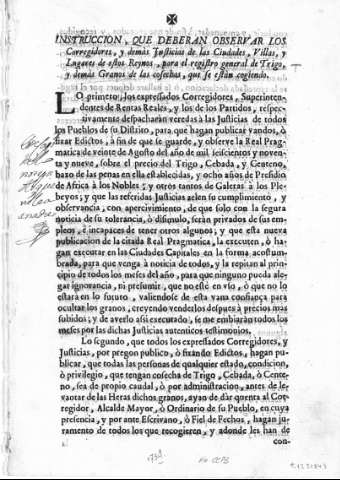 INSTRUCCION, QUE DEBERAN OBSERVAR LOS
Corregidores, y demàs Justicias de las Ciudades, Villas, y
Lugares de estos Reynos, para el registro general de Trigo,
y demàs Granos de las cosechas, que se estàn cogiendo.
LO primero, los expressados Corregidores, Superinten-
dentes de Rentas Reales, y los de los Partidos, respec-
tivamente despacharàn veredas à las Justicias de todos
los Pueblos de su Distrito, para que hagan publicar vandos, ò
fixar Edictos, à fin de que se guarde, y observe la Real Prag-
matica de veinte de Agosto del año de mil seiscientos y noven-
ta y nueve, sobre el precio del Trigo, Cebada, y Centeno,
baxo de las penas en ella establecidas, y ocho años de Presidio
de Africa à los Nobles; y otros tantos de Galeras à los Ple-
beyos; y que las referidas Justicias zelen su cumplimiento, y
observancia, con apercivimiento, de que solo con la segura
noticia de su tolerancia, ò disimulo, seràn privados de sus em-
pleos, è incapaces de tener otros algunos; y que esta nueva
publicacion de la citada Real Pragmatica, la executen, ò ha-
gan executar en las Ciudades Capitales en la forma acostum-
brada, para que venga à noticia de todos, y la repitan al prin-
cipio de todos los meses del año, para que ninguno pueda ale-
gar ignorancia, ni presumir, que no estè en uso, ò que no lo
estarà en lo futuro, valiendose de esta vana confianza para
ocultar los granos, creyendo venderlos despues à precios mas
subidos; y de averlo assi executado, se me embiaràn todos los
meses por las dichas Justicias autenticos testimonios.
Lo segundo, que todos los expressados Corregidores, y
Justicias, por pregon publico, ò fixando Edictos, hagan pu-
blicar, que todas las personas de qualquier estado, condicion,
ò privilegio, que tengan cosecha de Trigo, Cebada, ò Cente-
no, sea de propio caudal, ò por administracion, antes de le-
vantar de las Heras dichos granos, ayan de dàr quenta al Cor-
regidor, Alcalde Mayor, ò Ordinario de su Pueblo, en cuya
presencia, y por ante Escrivano, ò Fiel de Fechos, hagan ju-
ramento de todos los que recogieren, y adonde les han de
con-